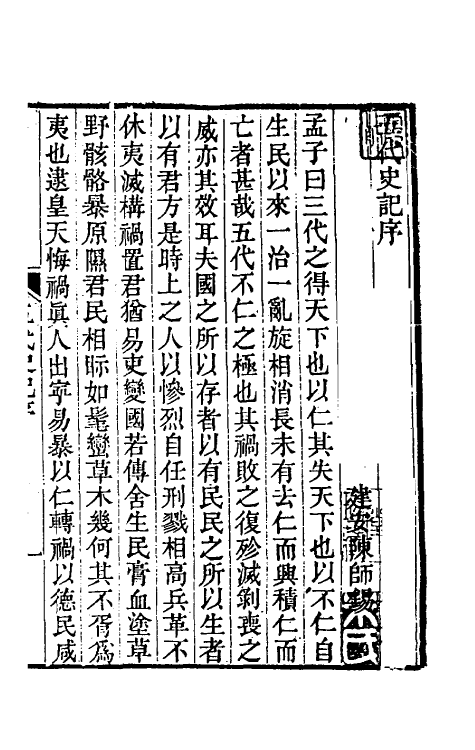 五代史記序
建安陳師錫
孟子曰三代之得天下也以仁其失天下也以不仁自
生民以來一治一亂旋相消長未有去仁而興積仁而
亡者甚哉五代不仁之極也其禍敗之復殄滅剝喪之
威亦其效耳夫國之所以存者以有民民之所以生者
以有君方是時上之人以慘烈自任刑戮相高兵革不
休夷滅構禍置君猶易吏變國若傳舍生民膏血塗草
野骸骼暴原隰君民相眎如髦蠻草木幾何其不胥為
夷也逮皇天悔禍眞人出寧易暴以仁轉禍以德民咸